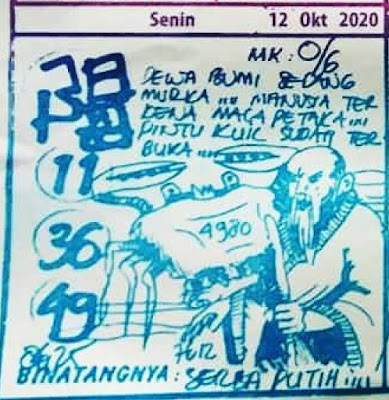 Senin 12 Okt 2020
MK: 0/6
DEWA BUMI SEDANG
MURKA .... MANUSIA TER
KENA MALA PETAKA ....
PINTU KUIL SUDAH TER
BUKA ....
11
4980
36
49
BINATANGNYA : SERBA PUTIH ....